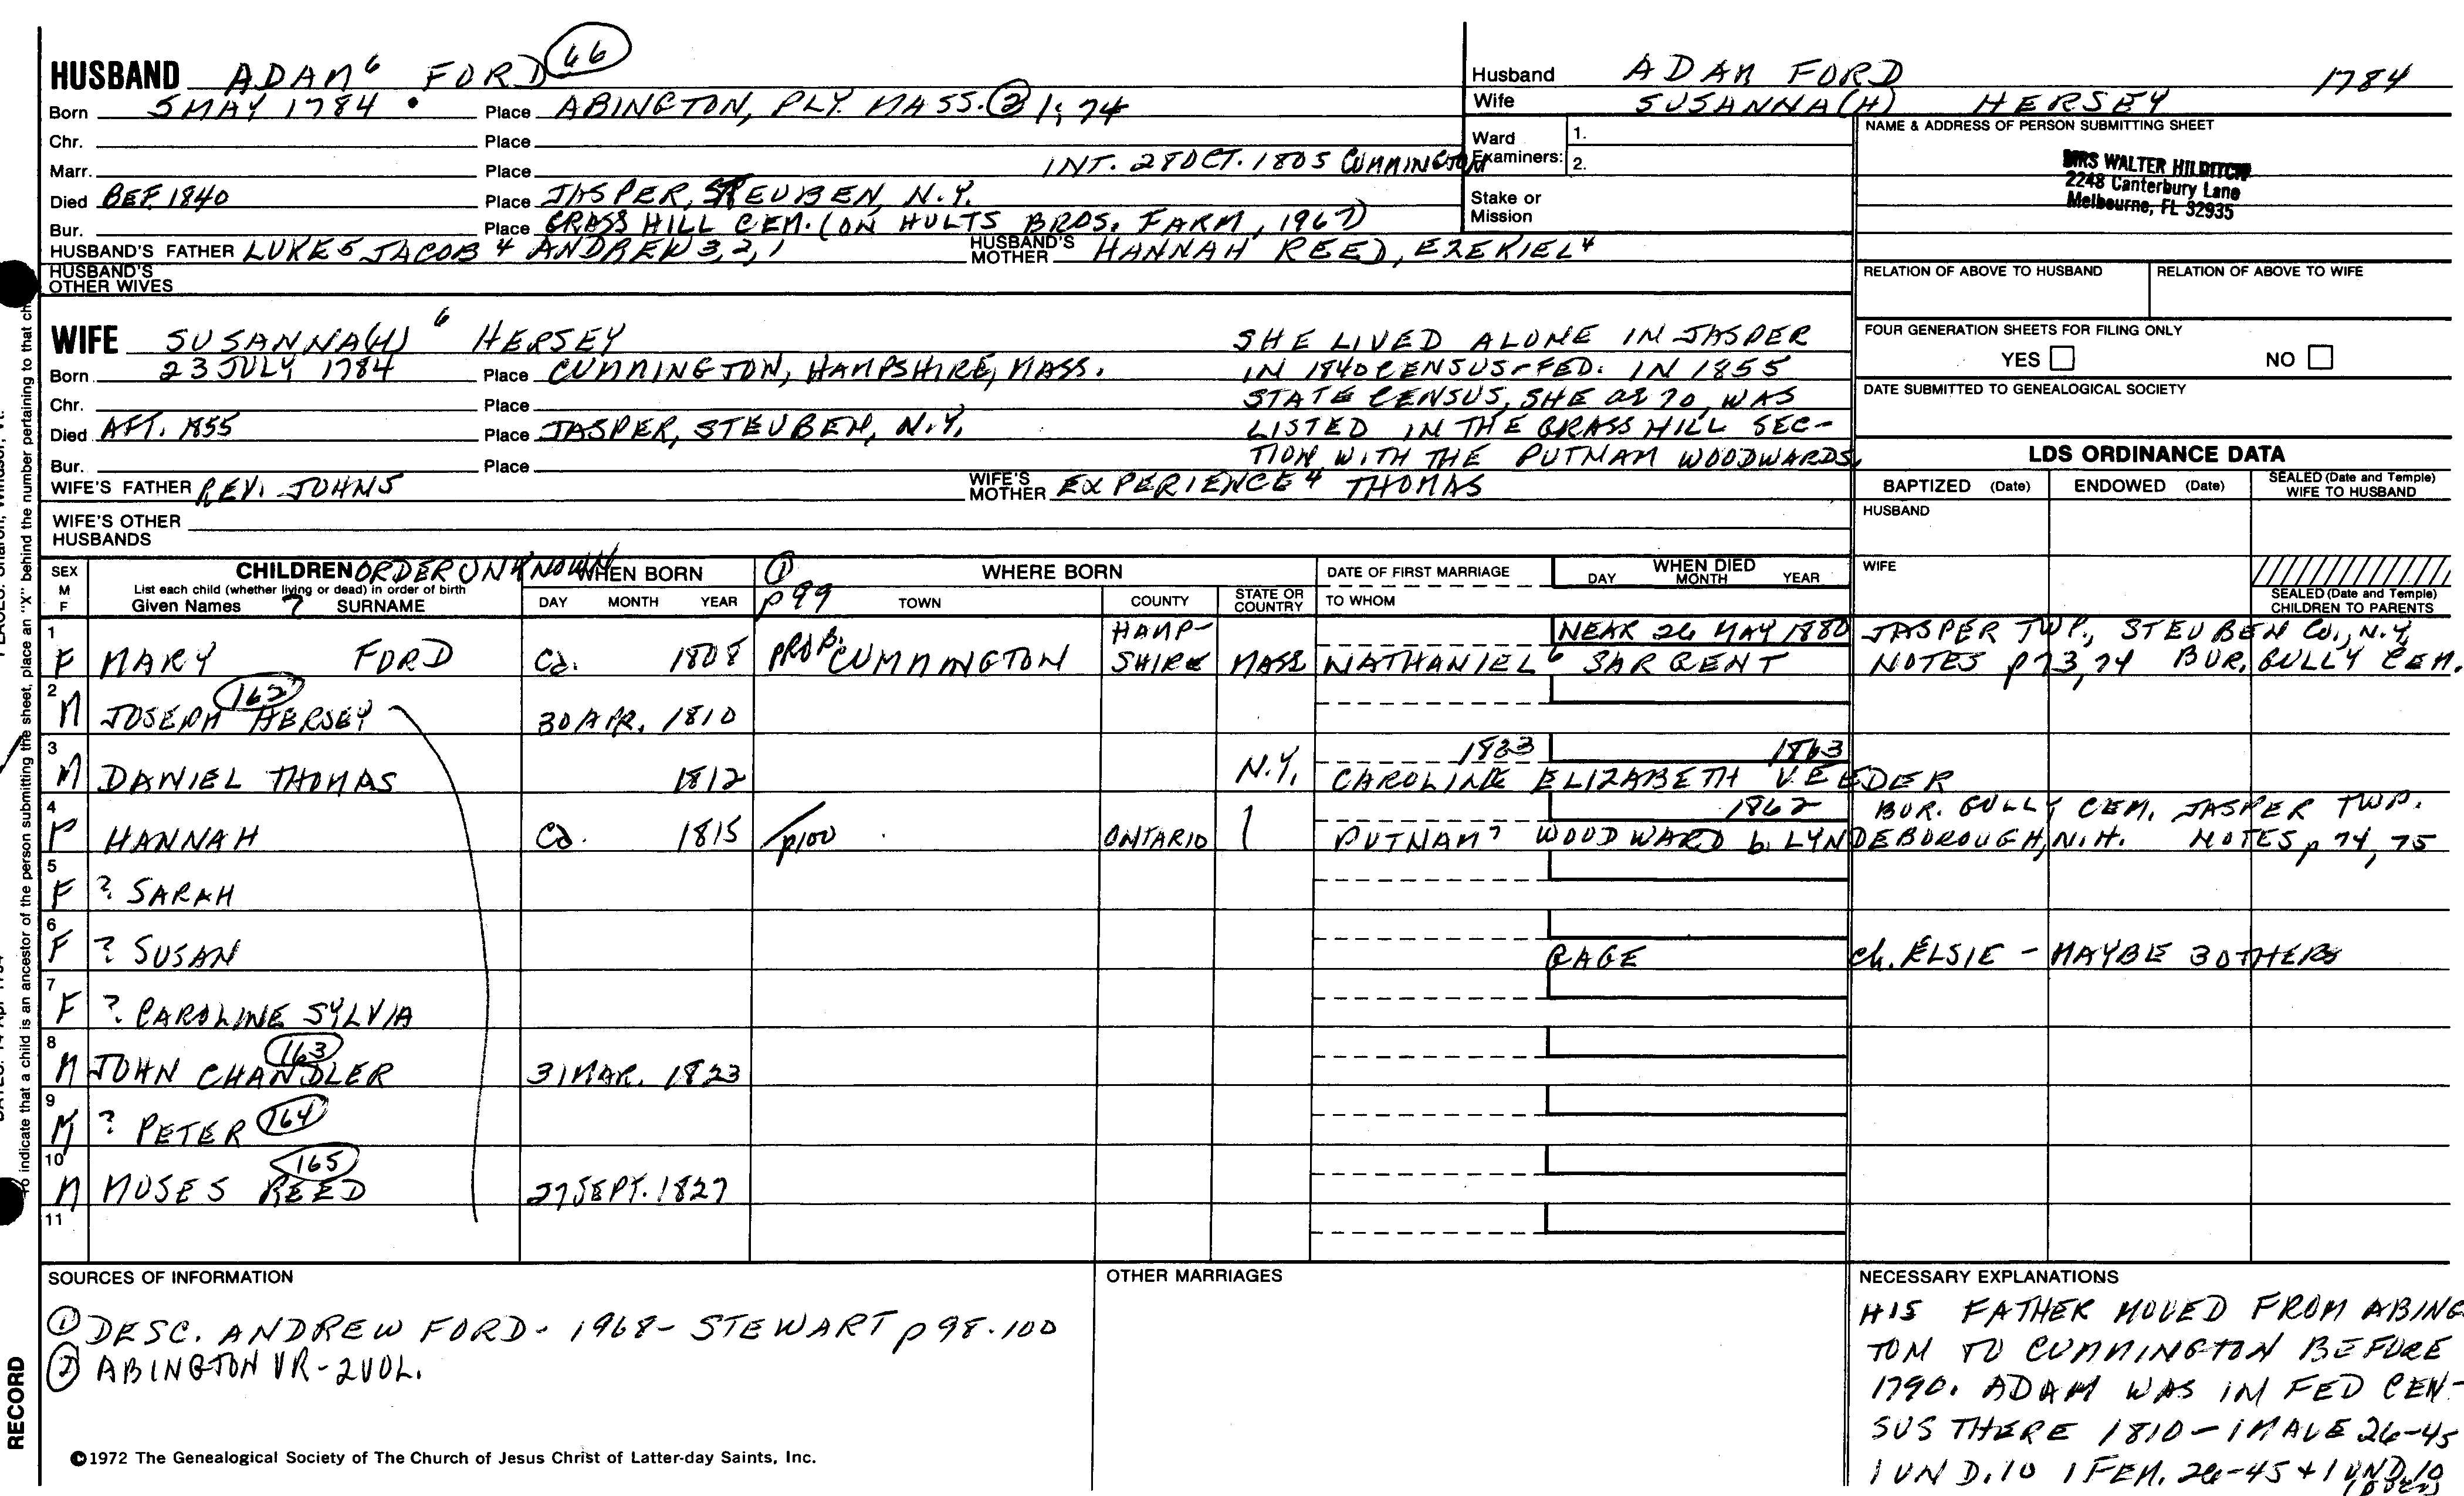 HUSBAND ADAM 6 FORD 66
Born 5 MAY 1784 • Place ABINGTON, PLY. MASS. ② 1:74
Chr. Place
Marr. Place INT. 28 OCT. 1805 CUMMINGTON
Died BEF. 1840 Place JASPER, STEUBEN, N.Y.
Bur. Place GRASS HILL CEM. (ON HULTS BROS. FARM, 1967)
HUSBAND'S FATHER LUKE 5 JACOB 4 ANDREW 3,2,1 HUSBAND'S MOTHER HANNAH REED, EZEKIEL 4
HUSBAND'S OTHER WIVES
Husband ADAM FORD 1784
Wife SUSANNA(H) HERSEY
Ward Examiners: 1.
2.
Stake or Mission
NAME & ADDRESS OF PERSON SUBMITTING SHEET
MRS WALTER HILDITCH
2248 Canterbury Lane
Melbourne, FL 32935
RELATION OF ABOVE TO HUSBAND RELATION OF ABOVE TO WIFE
WIFE SUSANNA(H) 6 HERSEY
Born 23 JULY 1784 Place CUMMINGTON, HAMPSHIRE, MASS.
Chr. Place
Died AFT. 1855 Place JASPER, STEUBEN, N.Y.
Bur. Place
SHE LIVED ALONE IN JASPER
IN 1840 CENSUS-FED. IN 1855
STATE CENSUS, SHE ae 70, WAS
LISTED IN THE GRASS HILL SEC-
TION WITH THE PUTNAM WOODWARDS.
WIFE'S FATHER REV. JOHN 5 WIFE'S MOTHER EXPERIENCE 4 THOMAS
WIFE'S OTHER HUSBANDS
FOUR GENERATION SHEETS FOR FILING ONLY
YES NO
DATE SUBMITTED TO GENEALOGICAL SOCIETY
LDS ORDINANCE DATA
BAPTIZED (Date) ENDOWED (Date) SEALED (Date and Temple) WIFE TO HUSBAND
HUSBAND
WIFE
SEALED (Date and Temple) CHILDREN TO PARENTS
SEX M F CHILDREN ORDER UNKNOWN WHEN BORN ① p 99 WHERE BORN DATE OF FIRST MARRIAGE WHEN DIED
List each child (whether living or dead) in order of birth
Given Names 7 SURNAME DAY MONTH YEAR TOWN COUNTY STATE OR COUNTRY TO WHOM DAY MONTH YEAR
1 F MARY FORD Ca. 1808 PROB. CUMMINGTON HAMP-SHIRE MASS NATHANIEL 6 SARGENT NEAR 26 MAY 1880 JASPER TWP., STEUBEN CO., N.Y.
NOTES p 73, 74 BUR. GULLY CEM.
2 M JOSEPH HERSEY 162 30 APR. 1810
3 M DANIEL THOMAS 1812 N.Y. 1833 CAROLINE ELIZABETH VEEDER 1863
4 F HANNAH Ca. 1815 p100 ONTARIO PUTNAM 7 WOODWARD b. LYNDEBOROUGH, N.H. 1862 BUR. GULLY CEM. JASPER TWP.
NOTES p 74, 75
5 F ? SARAH
6 F ? SUSAN GAGE ch. ELSIE - MAYBE 3 OTHERS
7 F ? CAROLINE SYLVIA
8 M JOHN CHANDLER 163 31 MAR. 1823
9 M ? PETER 164
10 M MOSES REED 165 27 SEPT. 1827
11
SOURCES OF INFORMATION
① DESC. ANDREW FORD - 1968 - STEWART p 98-100
② ABINGTON VR - 2 VOL.
OTHER MARRIAGES
NECESSARY EXPLANATIONS
HIS FATHER MOVED FROM ABING
TON TO CUMMINGTON BEFORE
1790. ADAM WAS IN FED CEN-
SUS THERE 1810 - 1 MALE 26-45
1 UND. 10 1 FEM. 26-45 + 1 UND. 10
©1972 The Genealogical Society of The Church of Jesus Christ of Latter-day Saints, Inc.
To indicate that a child is an ancestor of the person submitting the sheet, place an "X" behind the number pertaining to that ch
RECORD